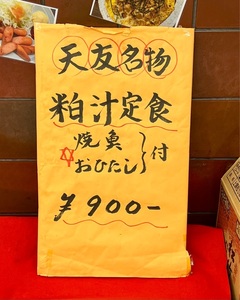 天友名物
粕汁定食
焼魚
おひたし}付
¥900-